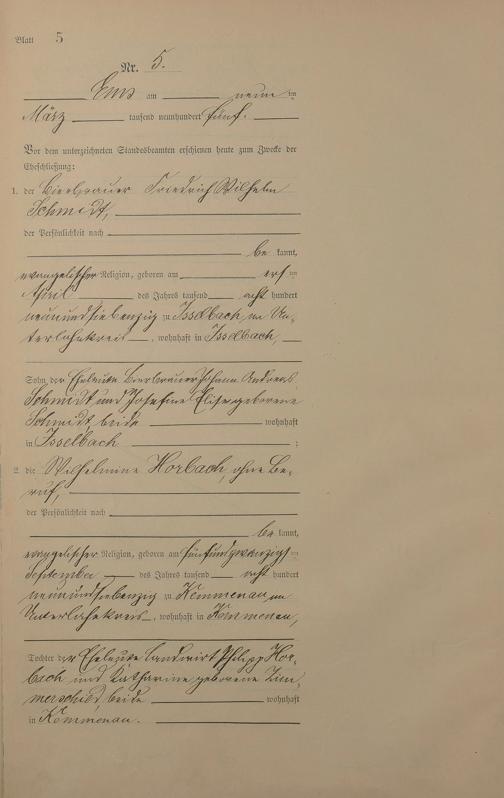 Blatt 5
Nr. 5.
Ems am neun ten
März tausend neunhundert fünf.
Vor dem unterzeichneten Standesbeamten erschienen heute zum Zwecke der
Eheschließung:
1. der Bierbrauer Friedrich Wilhelm
Schmidt,
der Persönlichkeit nach
be kannt,
evangelischer Religion, geboren am ersten
April des Jahres tausend acht hundert
neunundsiebenzig zu Isselbach, im Un-
terlahnkreis, wohnhaft in Isselbach,
Sohn der Eheleute Bierbrauer Johann Andreas
Schmidt und Josefine Elise geborene
Schmidt, beide wohnhaft
in Isselbach ;
2. die Wilhelmine Horbach, ohne Be-
ruf,
der Persönlichkeit nach
be kannt,
evangelischer Religion, geboren am fünfundzwanzigsten
September des Jahres tausend acht hundert
neunundsiebenzig zu Kemmenau, im
Unterlahnkreis, wohnhaft in Kemmenau,
Tochter der Eheleute Landwirt Philipp Hor-
bach und Katharine geborene Zim-
merschied, beide wohnhaft
in Kemmenau.